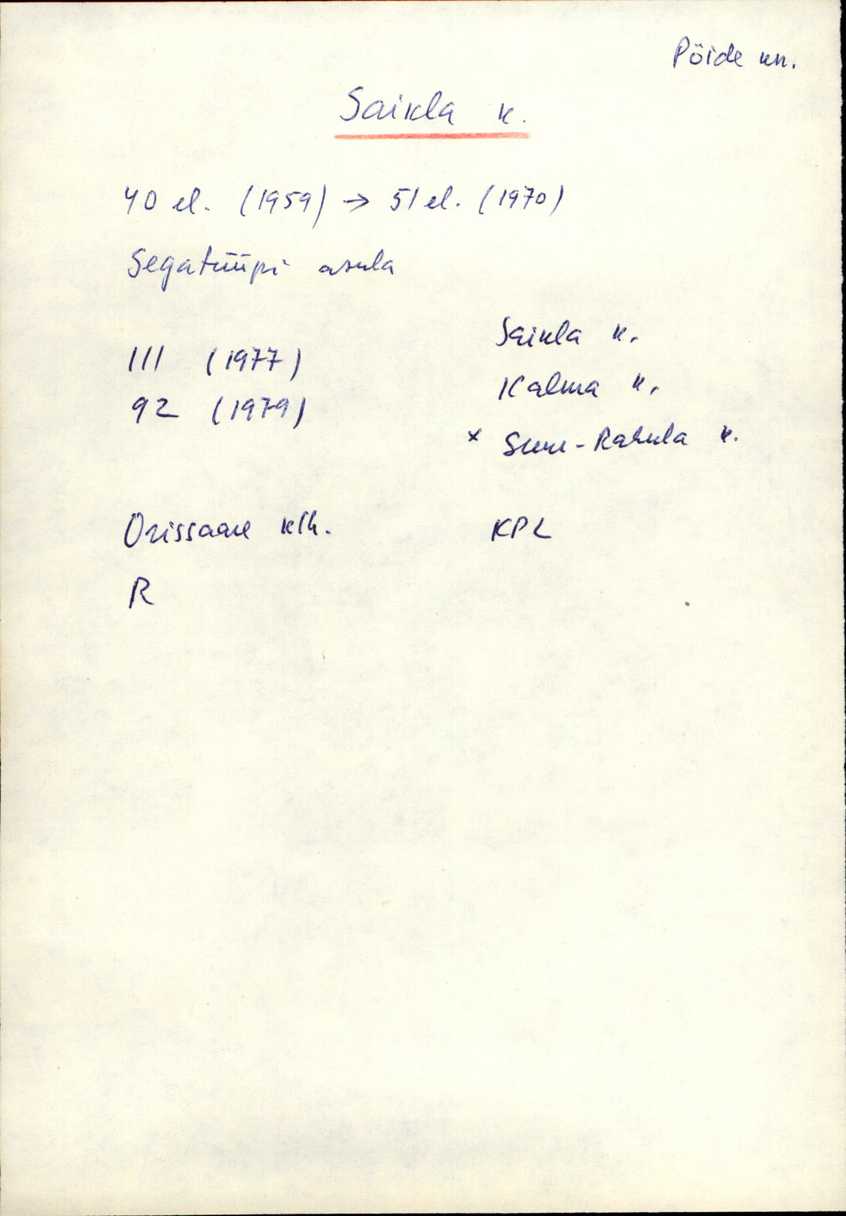 Pöide kn.
Saikla k.
40 el. (1959) → 51 el. (1970)
Segatüüpi asula
111 (1977)
92 (1979)
Saikla k.
Kalma k.
x Suur-Rahula k.
Orissaare klh.
KPL
R